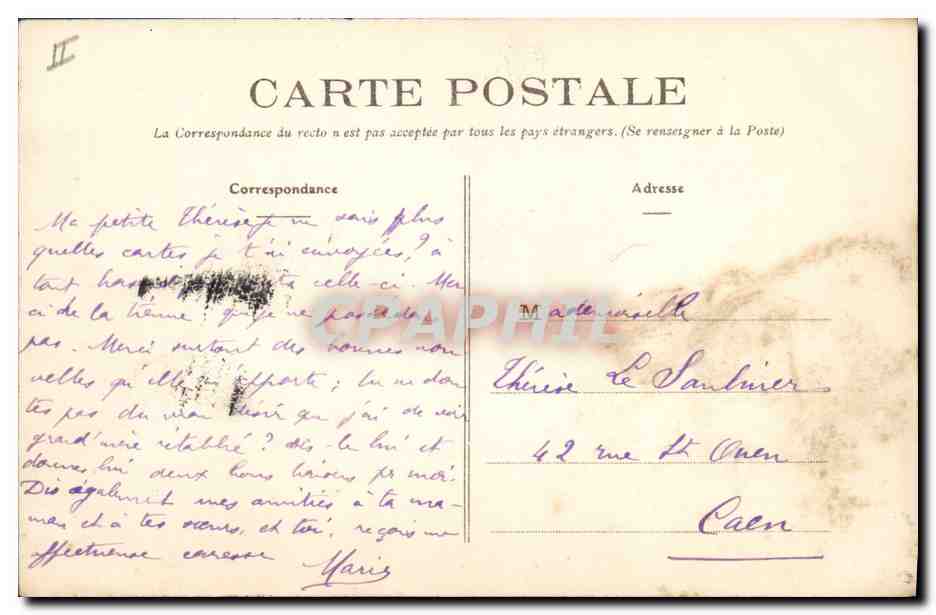 II
CARTE POSTALE
La Correspondance du recto n est pas acceptée par tous les pays étrangers. (Se renseigner à la Poste)
Correspondance
Ma petite Thérèse je ne sais plus
quelles cartes je t'ai envoyées, à
tout celle-ci. Mer
ci de la tienne que je ne possédais
pas. Merci surtout des bonnes nou
velles qu'elle apporte ; tu ne dou
tes pas du vrai désir que j'ai de voir
grand'mère rétablie ? dis-le lui et
donnes lui deux bons baisers pr moi.
Dis également mes amitiés à ta ma-
man et à tes sœurs, et toi, reçois une
affectueuse caresse
Marie
Adresse
Mademoiselle
Thérèse Le Saulnier
42 rue St Ouen
Caen
CPAPHIL